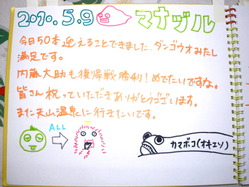 2010.5.9 マナヅル
今日50本迎えることできました、ダンゴウオみたし
満足です。
内藤大助も復帰戦勝利！めでたいですな。
皆さん祝っていただきありがとうございます。
また天山温泉に行きたいです。
ALL
カマボコ(オキエソ)